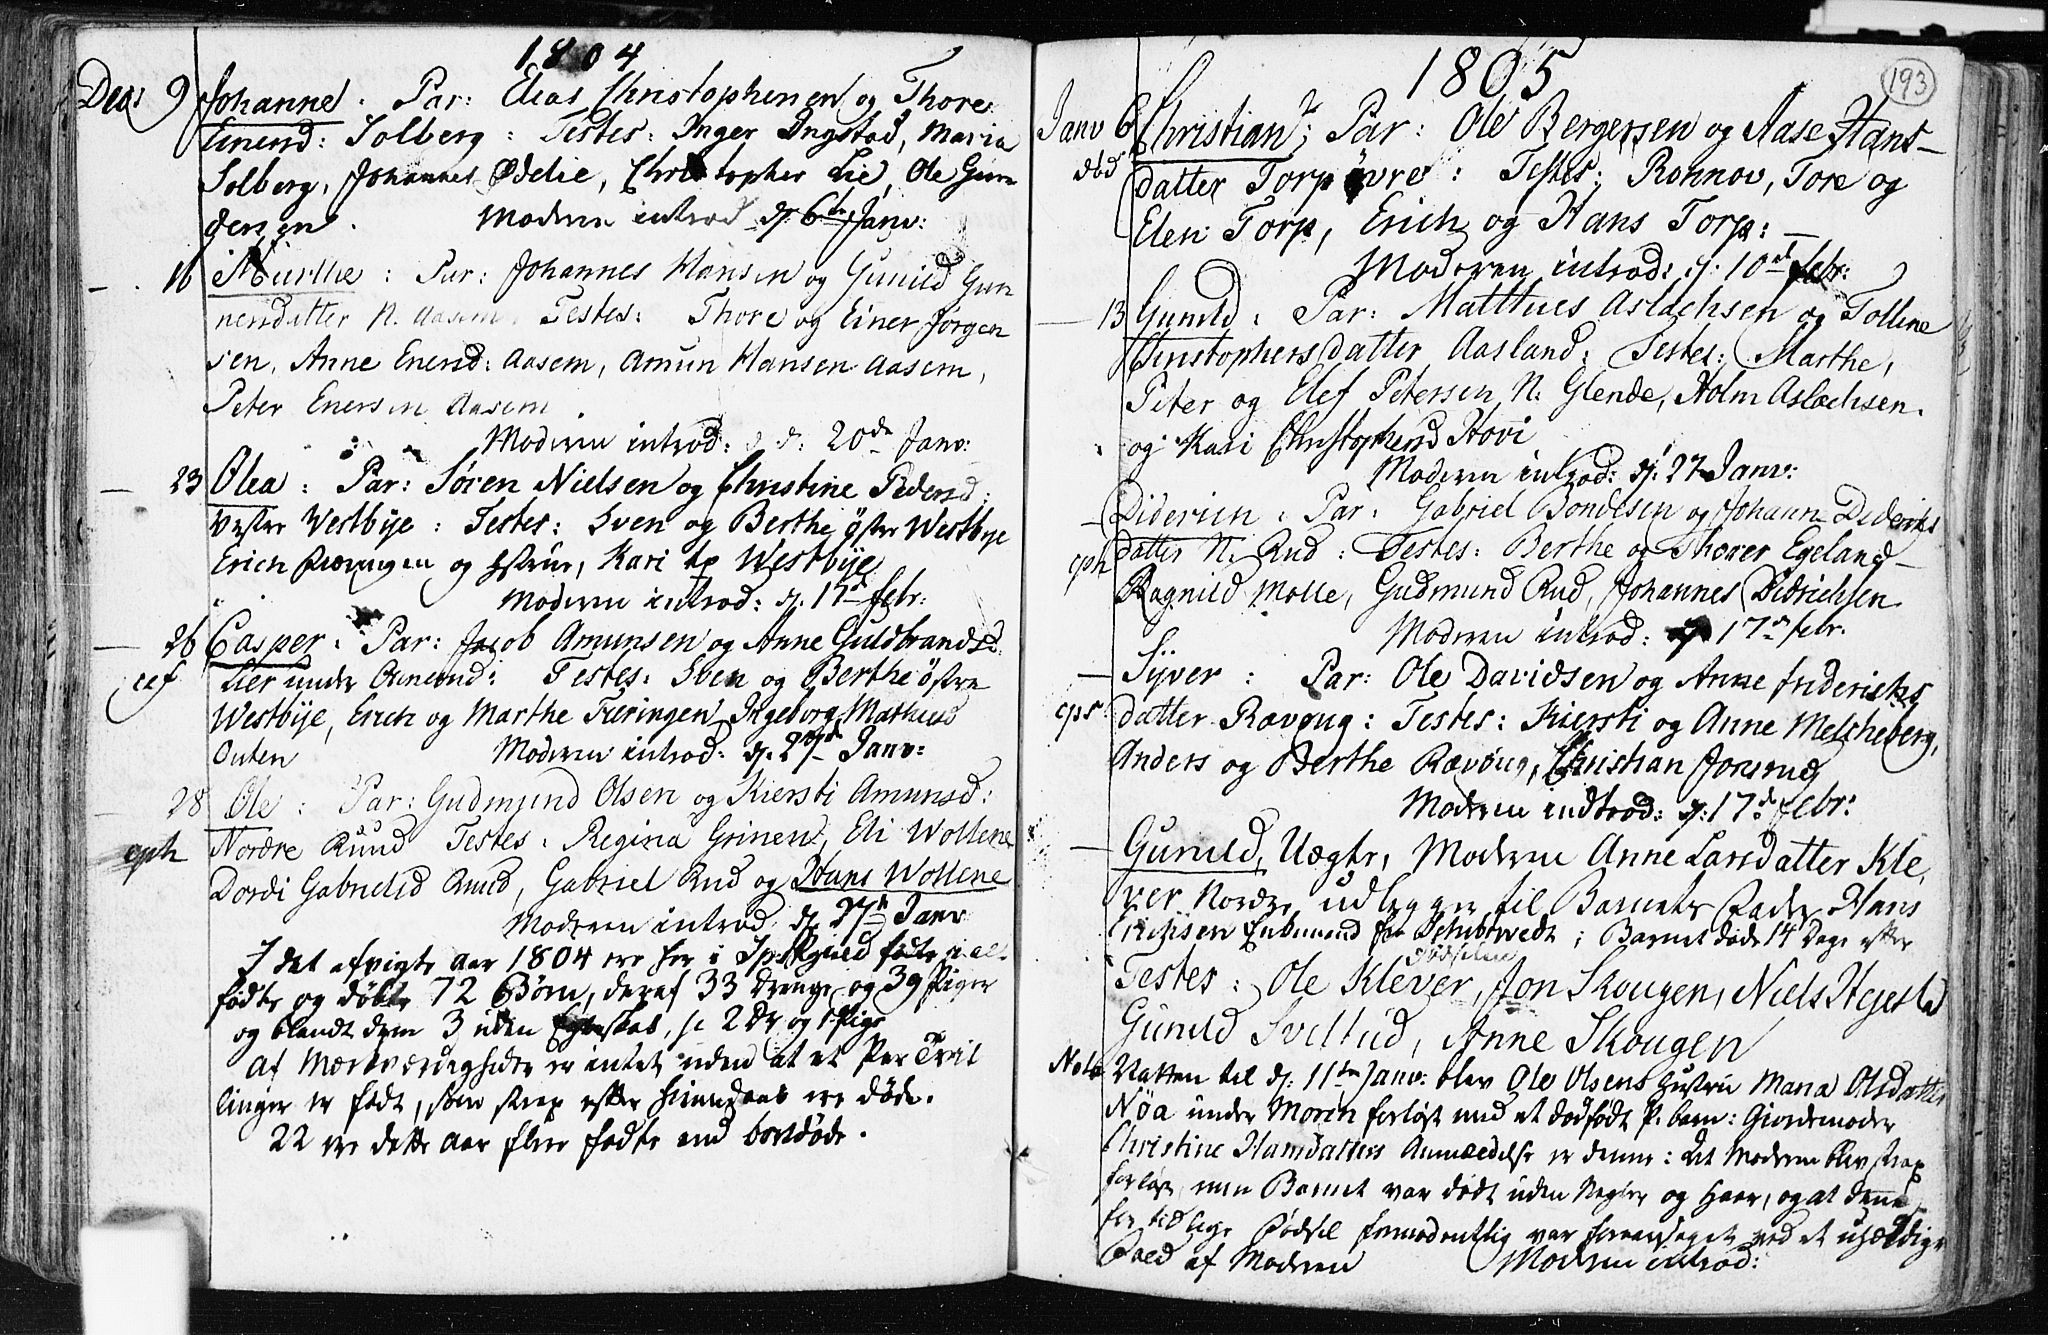 1804
Decs 9 Johanne : Par: Elias Christophersen og Thore
Einersd: Solberg : Testes: Inger Ingstad, Maria
Solberg, Johannes Ødelie, Christopher Lie, Ole Gun
dersen. Moderen introd d: 6te Janv:
— . 16 Marthe : Par: Johannes Hansen og Gunild Gun
nersdatter N. Aasem. Testes: Thore og Einer Jørgen
sen, Anne Enersd: Aasem, Amun Hansen Aasem,
Peter Enersen Aasem.
Moderen introd: d: 20de Janv:
— 23 Olea : Par: Søren Nielsen og Christine Pedersd:
Vestre Westbye : Testes: Sven og Berthe østre Westbye
Erich og Hstru, Kari Westbye
Moderen introd: d: 17d febr:
— 26 Casper : Par: Jacob Amunsen og Anne Guldbrandsd:
eef Lier under : Testes: Sven og Berthe østre
Westbye, Erich og Marthe Fieringen, Ingeborg Matheus
Outen Moderen introd: d. 27de Janv:
— 28 Ole : Par: Gudmund Olsen og Kiersti Amunsd:
eph Nordre Ruud Testes: Regina Grinen, Eli Wollene
Dordi Gabrielsd Ruud, Gabriel Rud og Hans Wollene
Moderen introd. d. 27de Janv:
I det afvigte aar 1804 ere her i fødte
fødte og døbte 72 Børn, deraf 33 Drenge og 39 Piger
og blandt dem 3 uden Egteskab, 2 Dr og 1 Pige
Af Mærkværdigheder er intet uden at et Par Tvil
linger er født, som strax efter hiemdaab ere døde.
22 ere dette aar flere fødte end bortdøde.
1805
193
Janv 6 Christian ; Par: Ole Bergersen og Aase Hans-
dbd datter Torp øvre : Testes: Ronnov, Tore og
Elen Torp, Erich og Hans Torp: —
Moderen introd: d: 10de febr:
— 13 Gunild : Par: Matthues Aslachsen og Tolline
Christophersdatter Aasland: Testes: Marthe,
Peter og Elef Petersen N. Glende, Holm Aslachsen.
og Kari Christophersd Hovi
Moderen introd: d: 27 Janv:
— Diderich : Par: Gabriel Bondesen og Johanne Dideriks
eph datter N. Rud : Testes: Berthe og Thorer Egeland —
Ragnild Molle, Gudmund Rud, Johannes Didrichsen
Moderen introd: d 17de febr.
— Syver : Par: Ole Davidsen og Anne friderichs
eps datter Røvøug : Testes: Kiersti og Anne Melcheberg,
Anders og Berthe Røvøug, Christian Jonsrud
Moderen indtrod: d: 17de febr:
— Gunild, Uægte, Moderen Anne Larsdatter Kle
ver Nordre udlegger til Barnets Fader Hans
Enkemand fra ; Barnet døde 14 Dage efter
fødselen
Testes : Ole Klever, Jon Skougen, Niels
Gunild Sveltud, Anne Skougen
Nota Natten til d: 11te Janv: blev Ole Olsens Hustru Maria Olsdatter
Nøa under Moren forløst med et dødfødt P. barn: Giordemoder
Christine Hansdatters Anmeldelse er denne: at Moderen blev strax
forløst, men Barnet var dødt uden Negler og Haar, og at denne
for tidlige Fødsel formodentlig var foraarsaget ved et uheldige
Fald af Moderen Moderen introd: